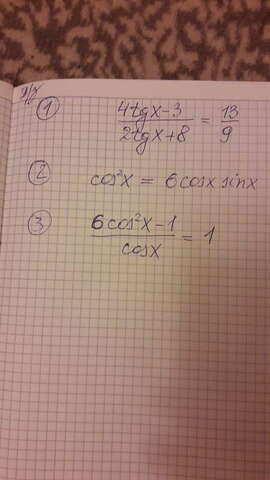 д/з
① (4tgx-3)/(2tgx+8) = 13/9
② cos²x = 6cosx sinx
③ (6cos²x-1)/cosx = 1